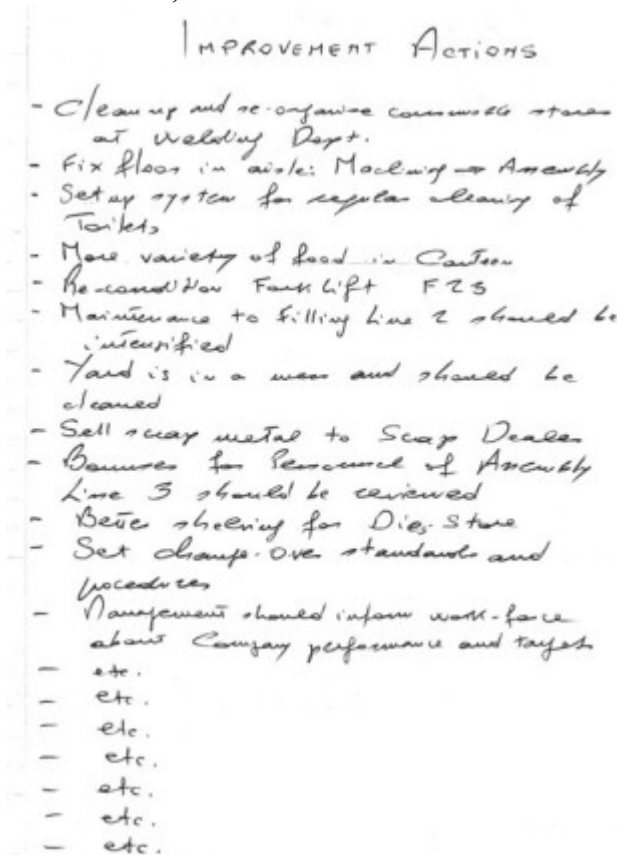 IMPROVEMENT ACTIONS
- Clean up and re-organise consumable stores
at Welding Dept.
- Fix floor in aisle: Machining → Assembly
- Set up system for regular cleaning of
Toilets
- More variety of food in Canteen
- Re-condition Fork Lift F25
- Maintenance to Filling Line 2 should be
intensified
- Yard is in a mess and should be
cleaned
- Sell scrap metal to Scrap Dealer
- Bonuses for Personnel of Assembly
Line 3 should be reviewed
- Better shelving for Dies-Store
- Set change-over standards and
procedures
- Management should inform work-force
about Company performance and targets
- etc.
- etc.
- etc.
- etc.
- etc.
- etc.
- etc.